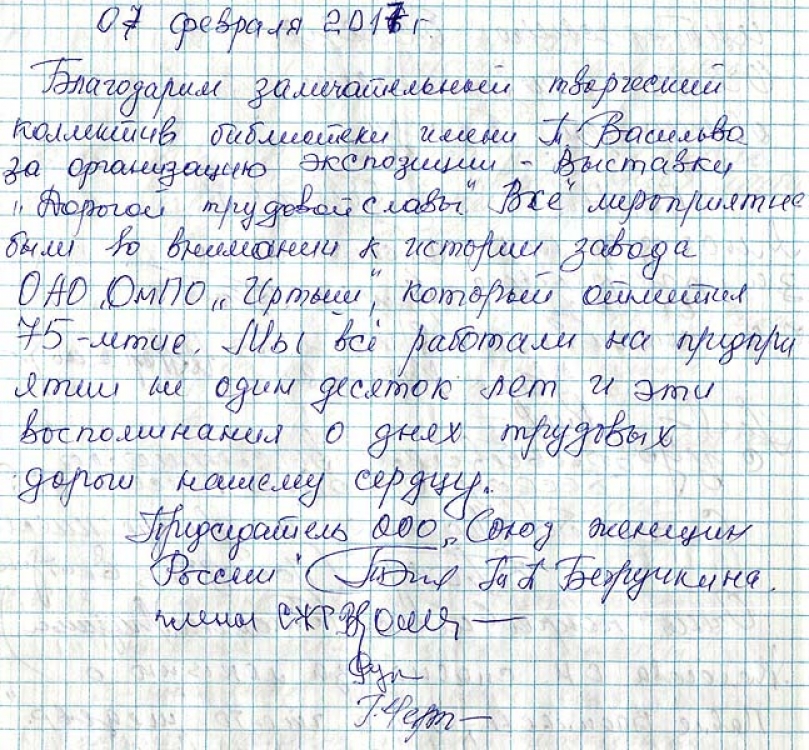 07 февраля 2017 г.
Благодарим замечательный творческий
коллектив библиотеки имени П. Васильева
за организацию экспозиции - выставки
„Дорогой трудовой славы" Все мероприятие
были во внимании к истории завода
ОАО „ОмПО „Иртыш", который отметил
75-летие. Мы все работали на предпри
ятии не один десяток лет и эти
воспоминания о днях трудовых
дороги нашему сердцу.
Председатель ООО „Союз женщин
России"
члены СЖР